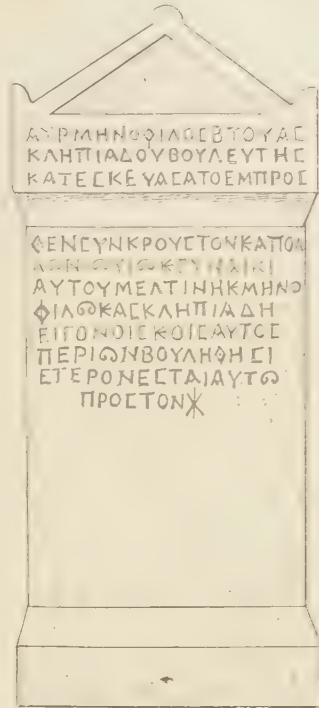 ΑΥΡΜΗΝΟΦΙΛΟϹΒΤΟΥΑϹ
ΚΛΗΠΙΑΔΟΥΒΟΥΛΕΥΤΗϹ
ΚΑΤΕϹΚΕΥΑϹΑΤΟΕΜΠΡΟϹ
ΘΕΝϹΥΝΚΡΟΥϹΤΟΝΚΑΠΟΛ
ΑΥΤΟΥΜΕΛΤΙΝΗΚΜΗΝΟ
ΦΙΛΩΚΑϹΚΛΗΠΙΑΔΗ
ΕΙΓΟΝΟΙϹΚΟΙϹΑΥΤΟϹ
ΠΕΡΙΩΝΒΟΥΛΗΘΗϹΙ
ΕΤΕΡΟΝΕϹΤΑΙΑΥΤΩ
ΠΡΟϹΤΟΝ